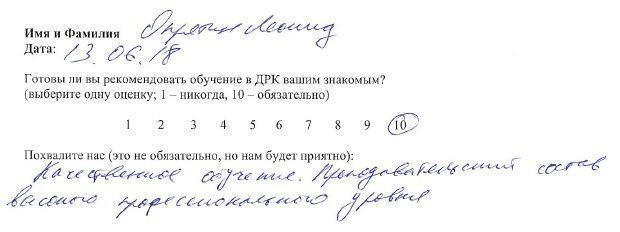 Имя и Фамилия Опрятин Леонид
Дата: 13.06.18
Готовы ли вы рекомендовать обучение в ДРК вашим знакомым?
(выберите одну оценку; 1 – никогда, 10 – обязательно)
1 2 3 4 5 6 7 8 9 10
Похвалите нас (это не обязательно, но нам будет приятно):
Качественное обучение. Преподавательский состав
высокого профессионального уровня